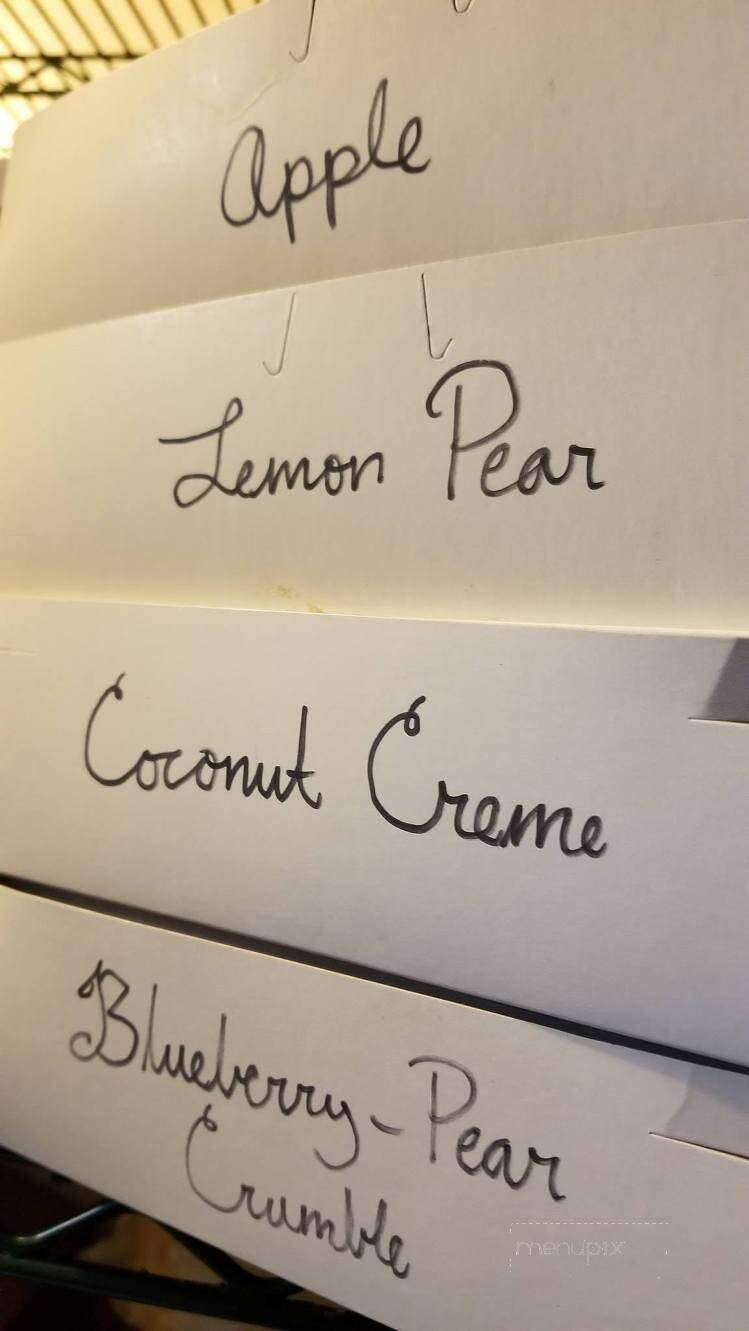 Apple
Lemon Pear
Coconut Creme
Blueberry-Pear
Crumble
menupix